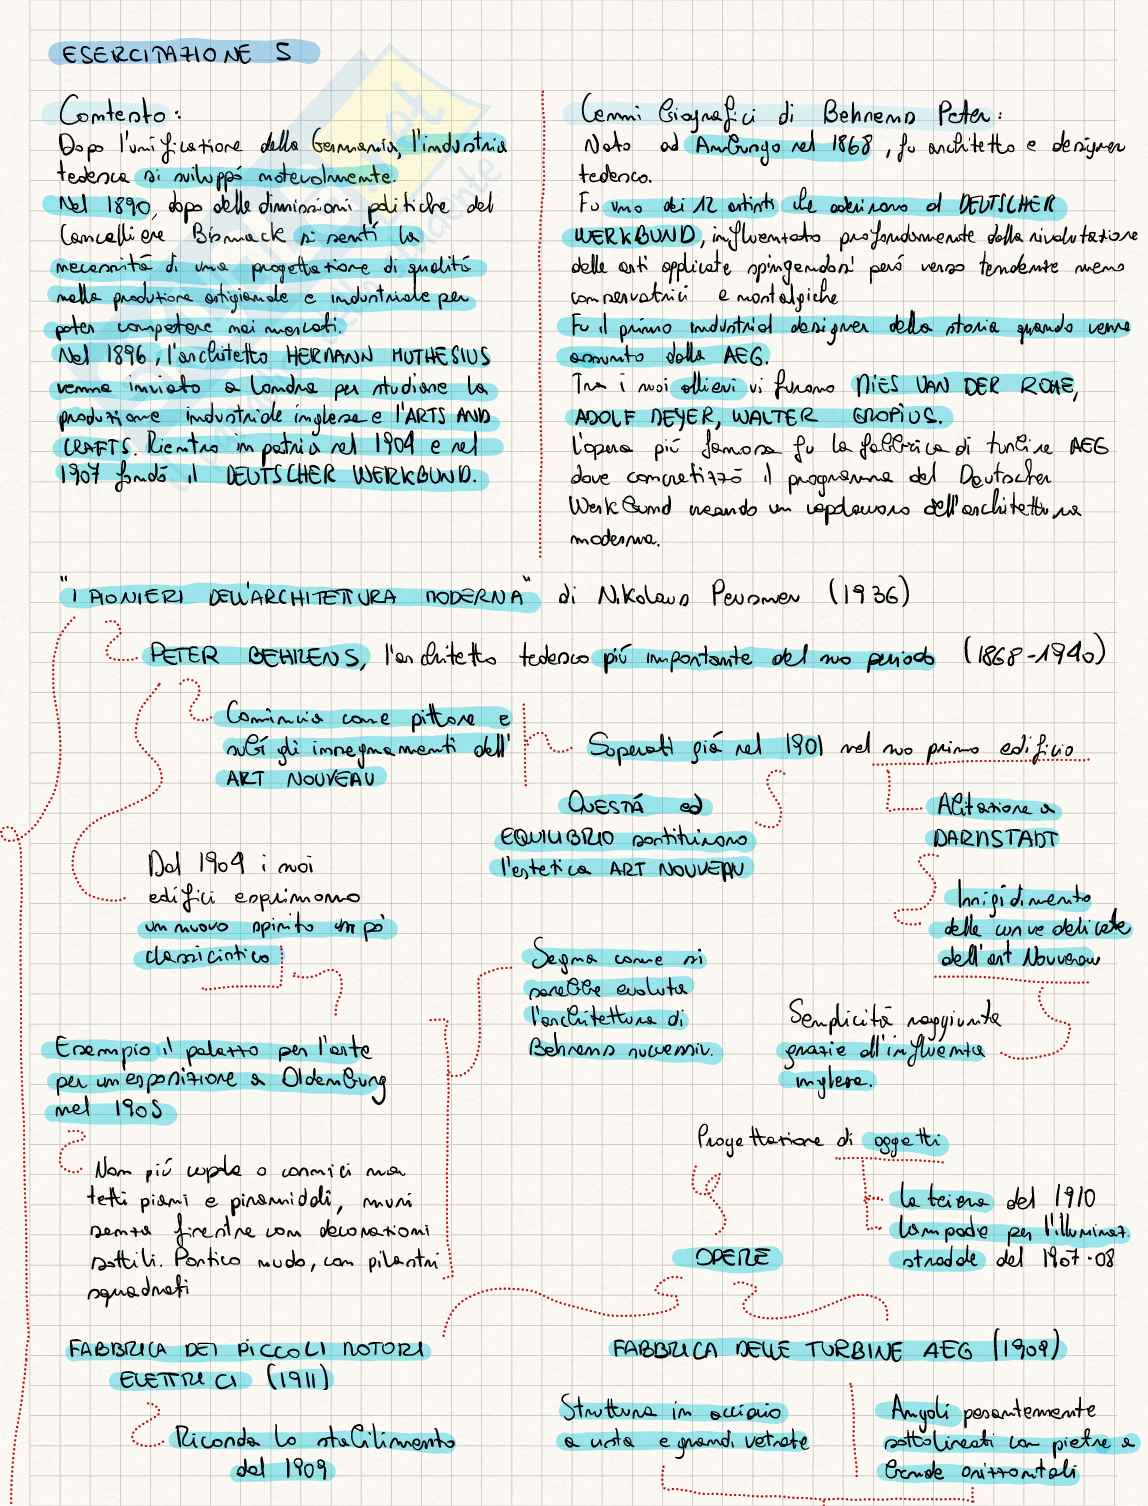 ESERCITAZIONE 5
Contesto:
Dopo l'unificazione della Germania, l'industria
tedesca si sviluppó notevolmente.
Nel 1890, dopo delle dimissioni politiche del
Cancelliere Bismack si sentí la
necessitá di una progettazione di qualitá
nella produzione artigianale e industriale per
poter competere nei mercati.
Nel 1896, l'architetto HERMANN MUTHESIUS
venne inviato a Londra per studiare la
produzione industriale inglese e l'ARTS AND
CRAFTS. Rientro in patria nel 1904 e nel
1907 fondó il DEUTSCHER WERKBUND.
Cenni biografici di Behrens Peter:
Nato ad Amburgo nel 1868, fu architetto e designer
tedesco.
Fu uno dei 12 artisti che aderirono al DEUTSCHER
WERKBUND, influenzato profondamente dalla rivalutazione
delle arti applicate spingendosi peró verso tendenze meno
conservatrici e nostalgiche
Fu il primo industrial designer della storia quando venne
assunto dalla AEG.
Tra i suoi allievi vi furono MIES VAN DER ROHE,
ADOLF MEYER, WALTER GROPIUS.
L'opera piú famosa fu la fabbrica di turbine AEG
dove concretizzó il programma del Deutscher
Werkbund creando un capolavoro dell'architettura
moderna.
"I PIONIERI DELL'ARCHITETTURA MODERNA" di Nikolaus Pevsner (1936)
PETER BEHRENS, l'architetto tedesco piú importante del suo periodo (1868-1940)
Comincia come pittore e
subí gli insegnamenti dell'
ART NOUVEAU
Superati giá nel 1901 nel suo primo edificio
ONESTÁ ed
EQUILIBRIO sostituirono
l'estetica ART NOUVEAU
Abitazione a
DARMSTADT
Irrigidimento
delle curve delicate
dell'art Nouveau
Dal 1904 i suoi
edifici esprimono
un nuovo spirito un pò
classicistico
Segna come si
sarebbe evoluta
l'architettura di
Behrens successiv.
Semplicitá raggiunta
grazie all'influenza
inglese.
Esempio il palazzo per l'arte
per un'esposizione a Oldenburg
nel 1905
Non piú cupole o cornici ma
tetti piani e piramidali, muri
senza finestre con decorazioni
sottili. Portico nudo, con pilastri
squadrati
Progettazione di oggetti
La teiera del 1910
Lampade per l'illuminaz.
stradale del 1907-08
OPERE
FABBRICA DEI PICCOLI MOTORI
ELETTRICI (1911)
Ricorda lo stabilimento
del 1909
FABBRICA DELLE TURBINE AEG (1909)
Struttura in acciaio
a vista e grandi vetrate
Angoli pesantemente
sottolineati con pietre a
bande orizzontali